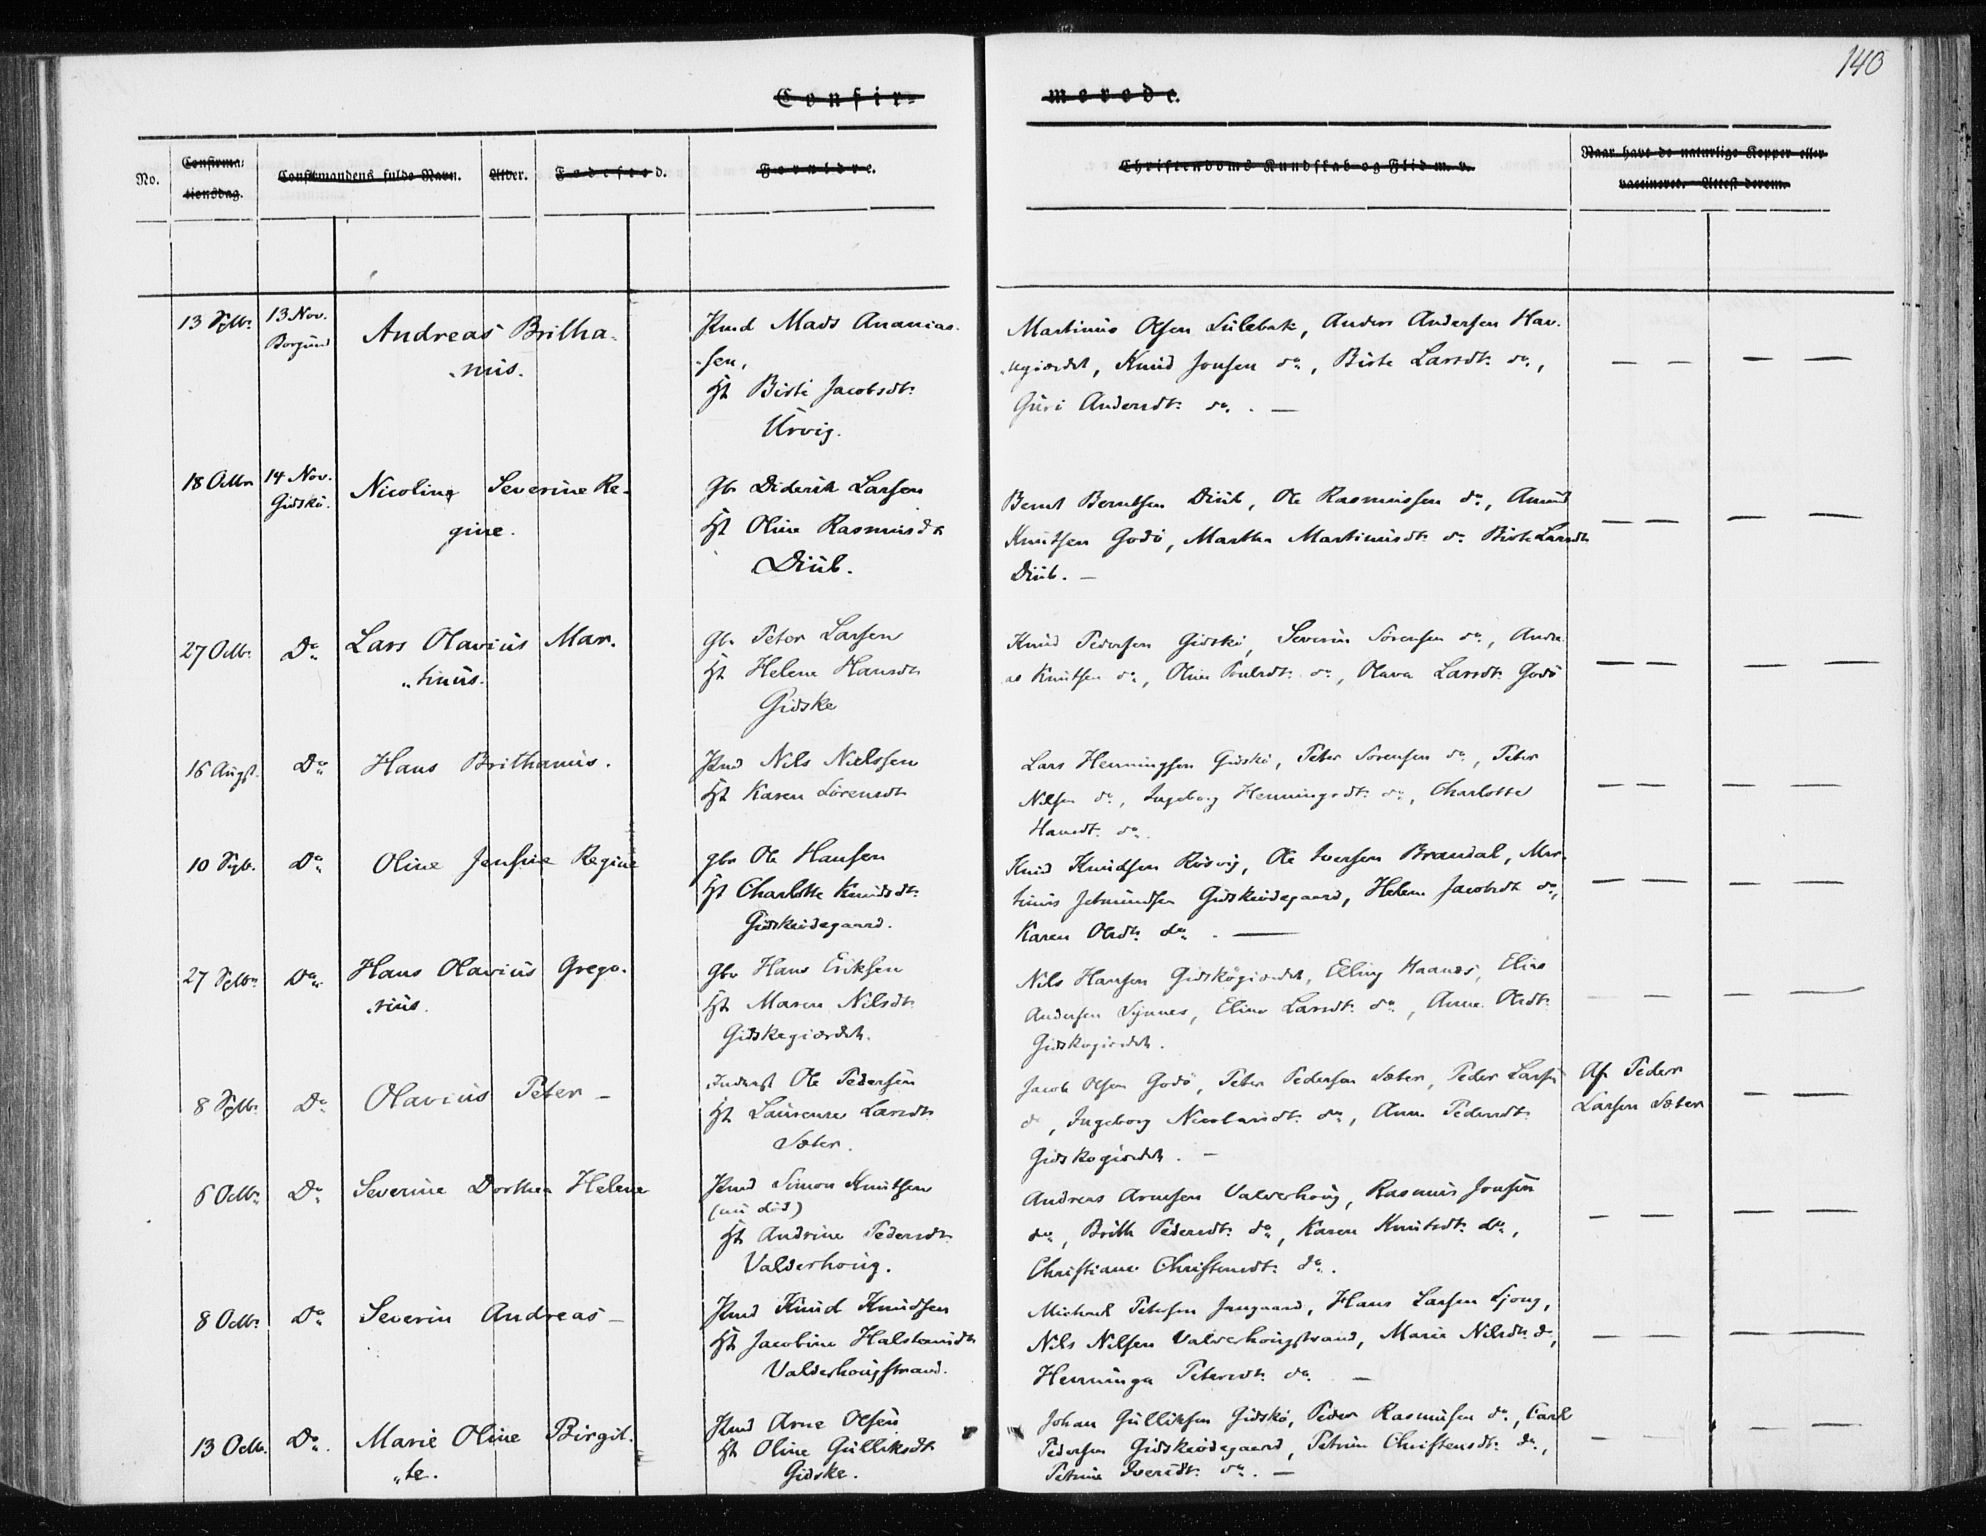 140
Confir-
merede.
No.
Confirma-
tionsdag.
Confirmandens fulde Navn.
Alder.
Fødested.
Forældre.
Christendoms Kundskab og Flid m. v.
Naar havt de naturlige Kopper eller
vaccineret. Attest derom.
13 Sptb:
13 Nov.
Borgund
Andreas Britha-
nius.
Hmd Mads Ananias-
sen,
H Birte Jacobsdt:
Urvig.
Martinus Olsen Sulebak, Anders Andersen Hav-
ngiærdet, Knud Jonsen do, Birte Larsdt: do,
Guri Andersdt: do. —
18 Octbr
14 Nov.
Gidskø.
Nicoline Severine Re-
gine.
Gbr Diderik Larsen
H Oline Rasmusdt
Diub.
Bernt Berntsen Diub, Ole Rasmussen do, Amund
Knutsen Godø, Martha Martinusdt: do Birte Larsdt
Diub. —
27 Octb:
Do
Lars Olavius Mar-
tinus.
Gbr Peter Larsen
H Helene Hansdt
Gidske
Knud Pedersen Gidskø, Severin Sørensen do, Andre-
as Knutsen do, Oline Poulsdt: do, Olava Larsdt: Godø
16 Augst.
Do
Hans Brithanius.
Hmd Nils Nielssen
H Karen Sørensdt
Lars Henningsen Gidskø, Peter Sørensen do, Peter
Nilsen do, Ingeborg Henningsdt: do, Charlotte
Hansdt: do.
10 Sptb.
Do
Oline Jensine Regine
gbr Ole Hansen
H Charlotte Knudsdt:
Gidskeødegaard.
Knud Knudsen Røsvig, Ole Iversen Brandal, Mar-
tinus Jetmundsen Gidskeødegaard, Helene Jacobsdt do,
Karen Olsdt: do. —
27 Sptb:
Do
Hans Olavius Grego-
rius.
Gbr Hans Eriksen
H Maren Nilsdt:
Gidskegiærdet.
Nils Hansen Gidskøgiærdet, Elling Haanes, Elias
Andersen Synnes, Eline Larsdt: do, Anne Olsdt:
Gidskogiærdet.
8 Sptb:
Do
Olavius Peter —
Inderst Ole Pedersen
H Laurense Larsdt:
Sæter.
Jacob Olsen Godø, Peter Pedersen Sæter, Peder Larsen
do, Ingeborg Nicolaisdt: do, Anne Pedersdt:
Gidskogiærdet. —
Af Peder
Larsen Sæter
6 Octb:
Do
Severine Dorthea Helene
Hmd Simon Knutsen
(nu død)
H Andrine Pedersdt:
Valderhoug.
Andreas Arnesen Valderhoug, Rasmus Jonsen
do, Brith Pedersdt: do, Karen Knutsdt: do,
Christiane Christensdt: do.
8 Octb:
Do
Severin Andreas —
Hmd Knud Knudsen
H Jacobine Halstensdt:
Valderhougstrand.
Michael Petersen Jangaard, Hans Larsen Ljong,
Nils Nilsen Valderhougstrand, Marie Nilsdt: do,
Henninga Petersdt: do. —
13 Octb.
Do.
Marie Oline Birgit-
te.
Hmd Arne Olsen
H Oline Gulliksdt:
Gidske.
Johan Gulliksen Gidskø, Peder Rasmusen do, Carl
Pedersen Gidskeødegaard, Petrine Christensdt: do,
Petrine Iversdt: do. —